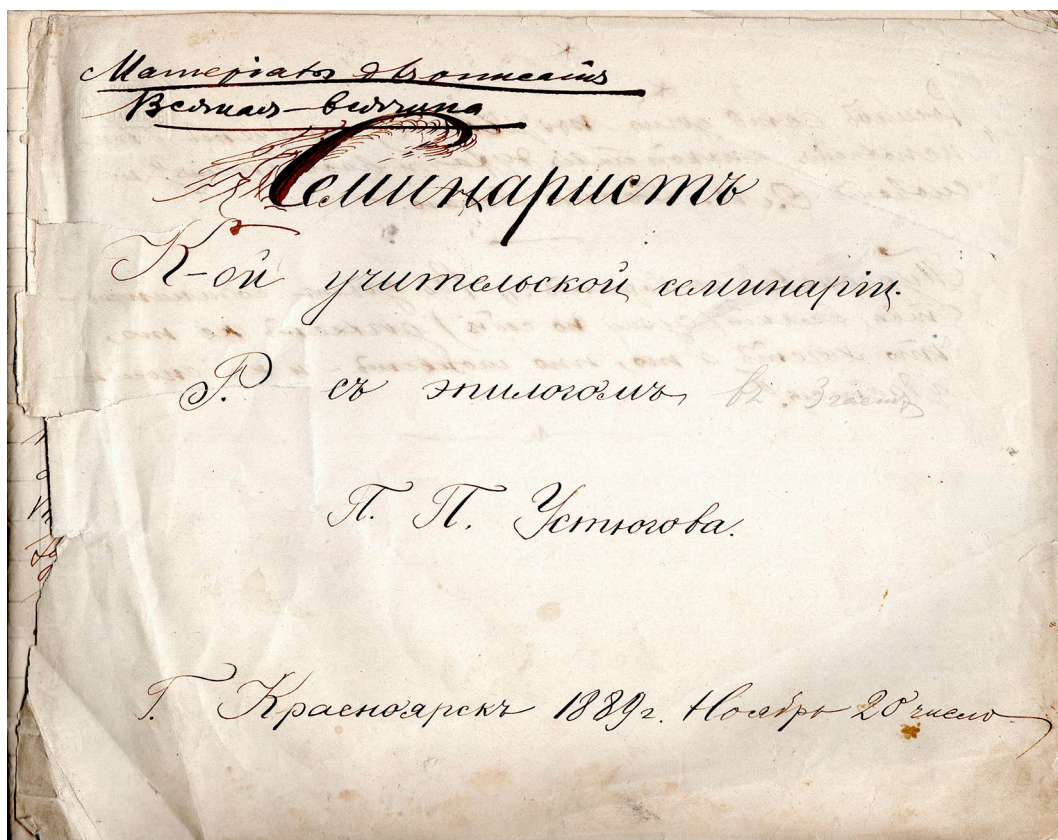 Матеріалъ
Всякая-всячина
Семинаристъ
К-ой учительской семинаріи.
Р. съ эпилогомъ въ 3 частяхъ
П. П. Устюгова.
Г. Красноярскъ 1889 г. Ноябрь 20 число